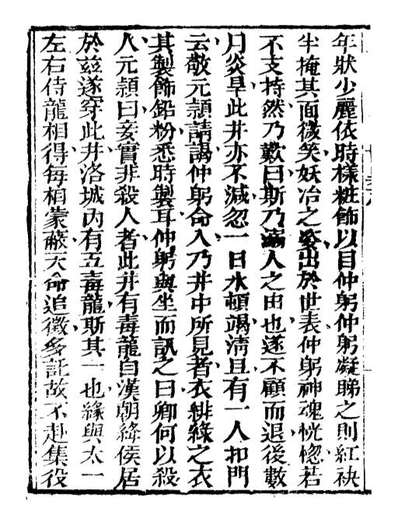 年狀少麗依時樣粧飾以目仲躬仲躬凝睇之則紅袂
半掩其面微笑妖冶之姿出於世表仲躬神魂恍惚若
不支持然乃歎曰斯乃溺人之由也遂不顧而退後數
月炎旱此井亦不減忽一日水頓竭清旦有一人扣門
云敬元頴請謁仲躬命入乃井中所見者衣緋綠之衣
其製飾鉛粉悉時製耳仲躬與坐而訊之曰卿何以殺
人元頴曰妾實非殺人者此井有毒龍自漢朝絳侯居
於茲遂穿此井洛城內有五毒龍斯其一也緣與太一
左右侍龍相得每相蒙蔽天命追徵多託故不赴集役